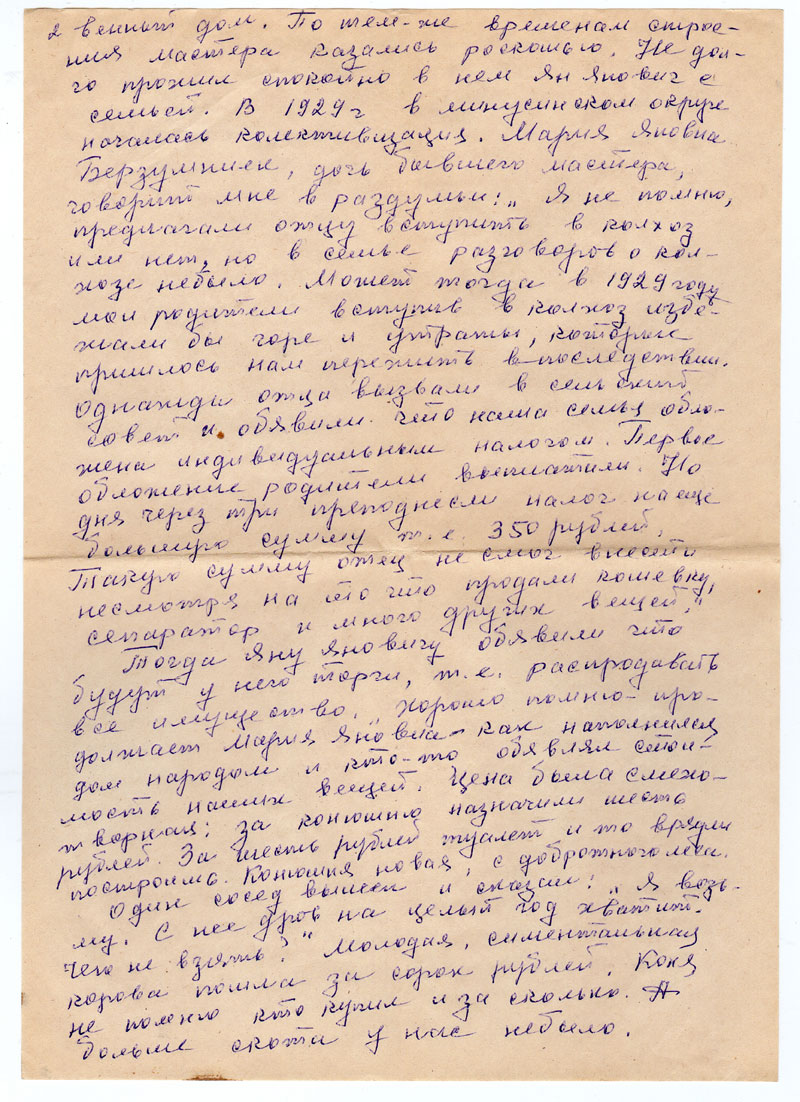 2 венный дом. По тем-же временам строе-
ния мастера казались роскошью. Не дол-
го прожил спокойно в нем Ян Янович с
семьей. В 1929 г в минусинском округе
началась колективизация. Мария Яновна
Берзумниек, дочь бывшего мастера,
говорит мне в раздумьи: „Я не помню,
предлагали отцу вступить в колхоз
или нет, но в семье разговоров о кол-
хозе небыло. Может тогда в 1929 году
мои родители вступив в колхоз избе-
жали бы горе и утраты, которые
пришлось нам пережить в-последствии.
Однажды отца вызвали в сельский
совет и обявили что наша семья обло-
жена индивидуальным налогом. Первое
обложение родители выплатили. Но
дня через три преподнесли налог на еще
большую сумму т.е. 350 рублей.
Такую сумму отец не смог внести
несмотря на то что продали кошевку,
сепаратор и много других вещей."
Тогда Яну Яновичу обявили что
будут у него торги, т.е. распродавать
все имущество. „Хорошо помню- про-
должает Мария Яновна- как наполнился
дом народом и кто-то обявлял стои-
мость наших вещей. Цена была смехо-
творная: за конюшню назначили шесть
рублей. За шесть рублей туалет и то врядли
построишь. Конюшня новая, с доброжного леса.
Один сосед вышел и сказал: „Я возь-
му. С нее дров на целый год хватит.
Чего не взять?" Молодая, симентальная
корова пошла за сорок рублей. Коня
не помню кто купил и за сколько. А
больше скота у нас небыло.